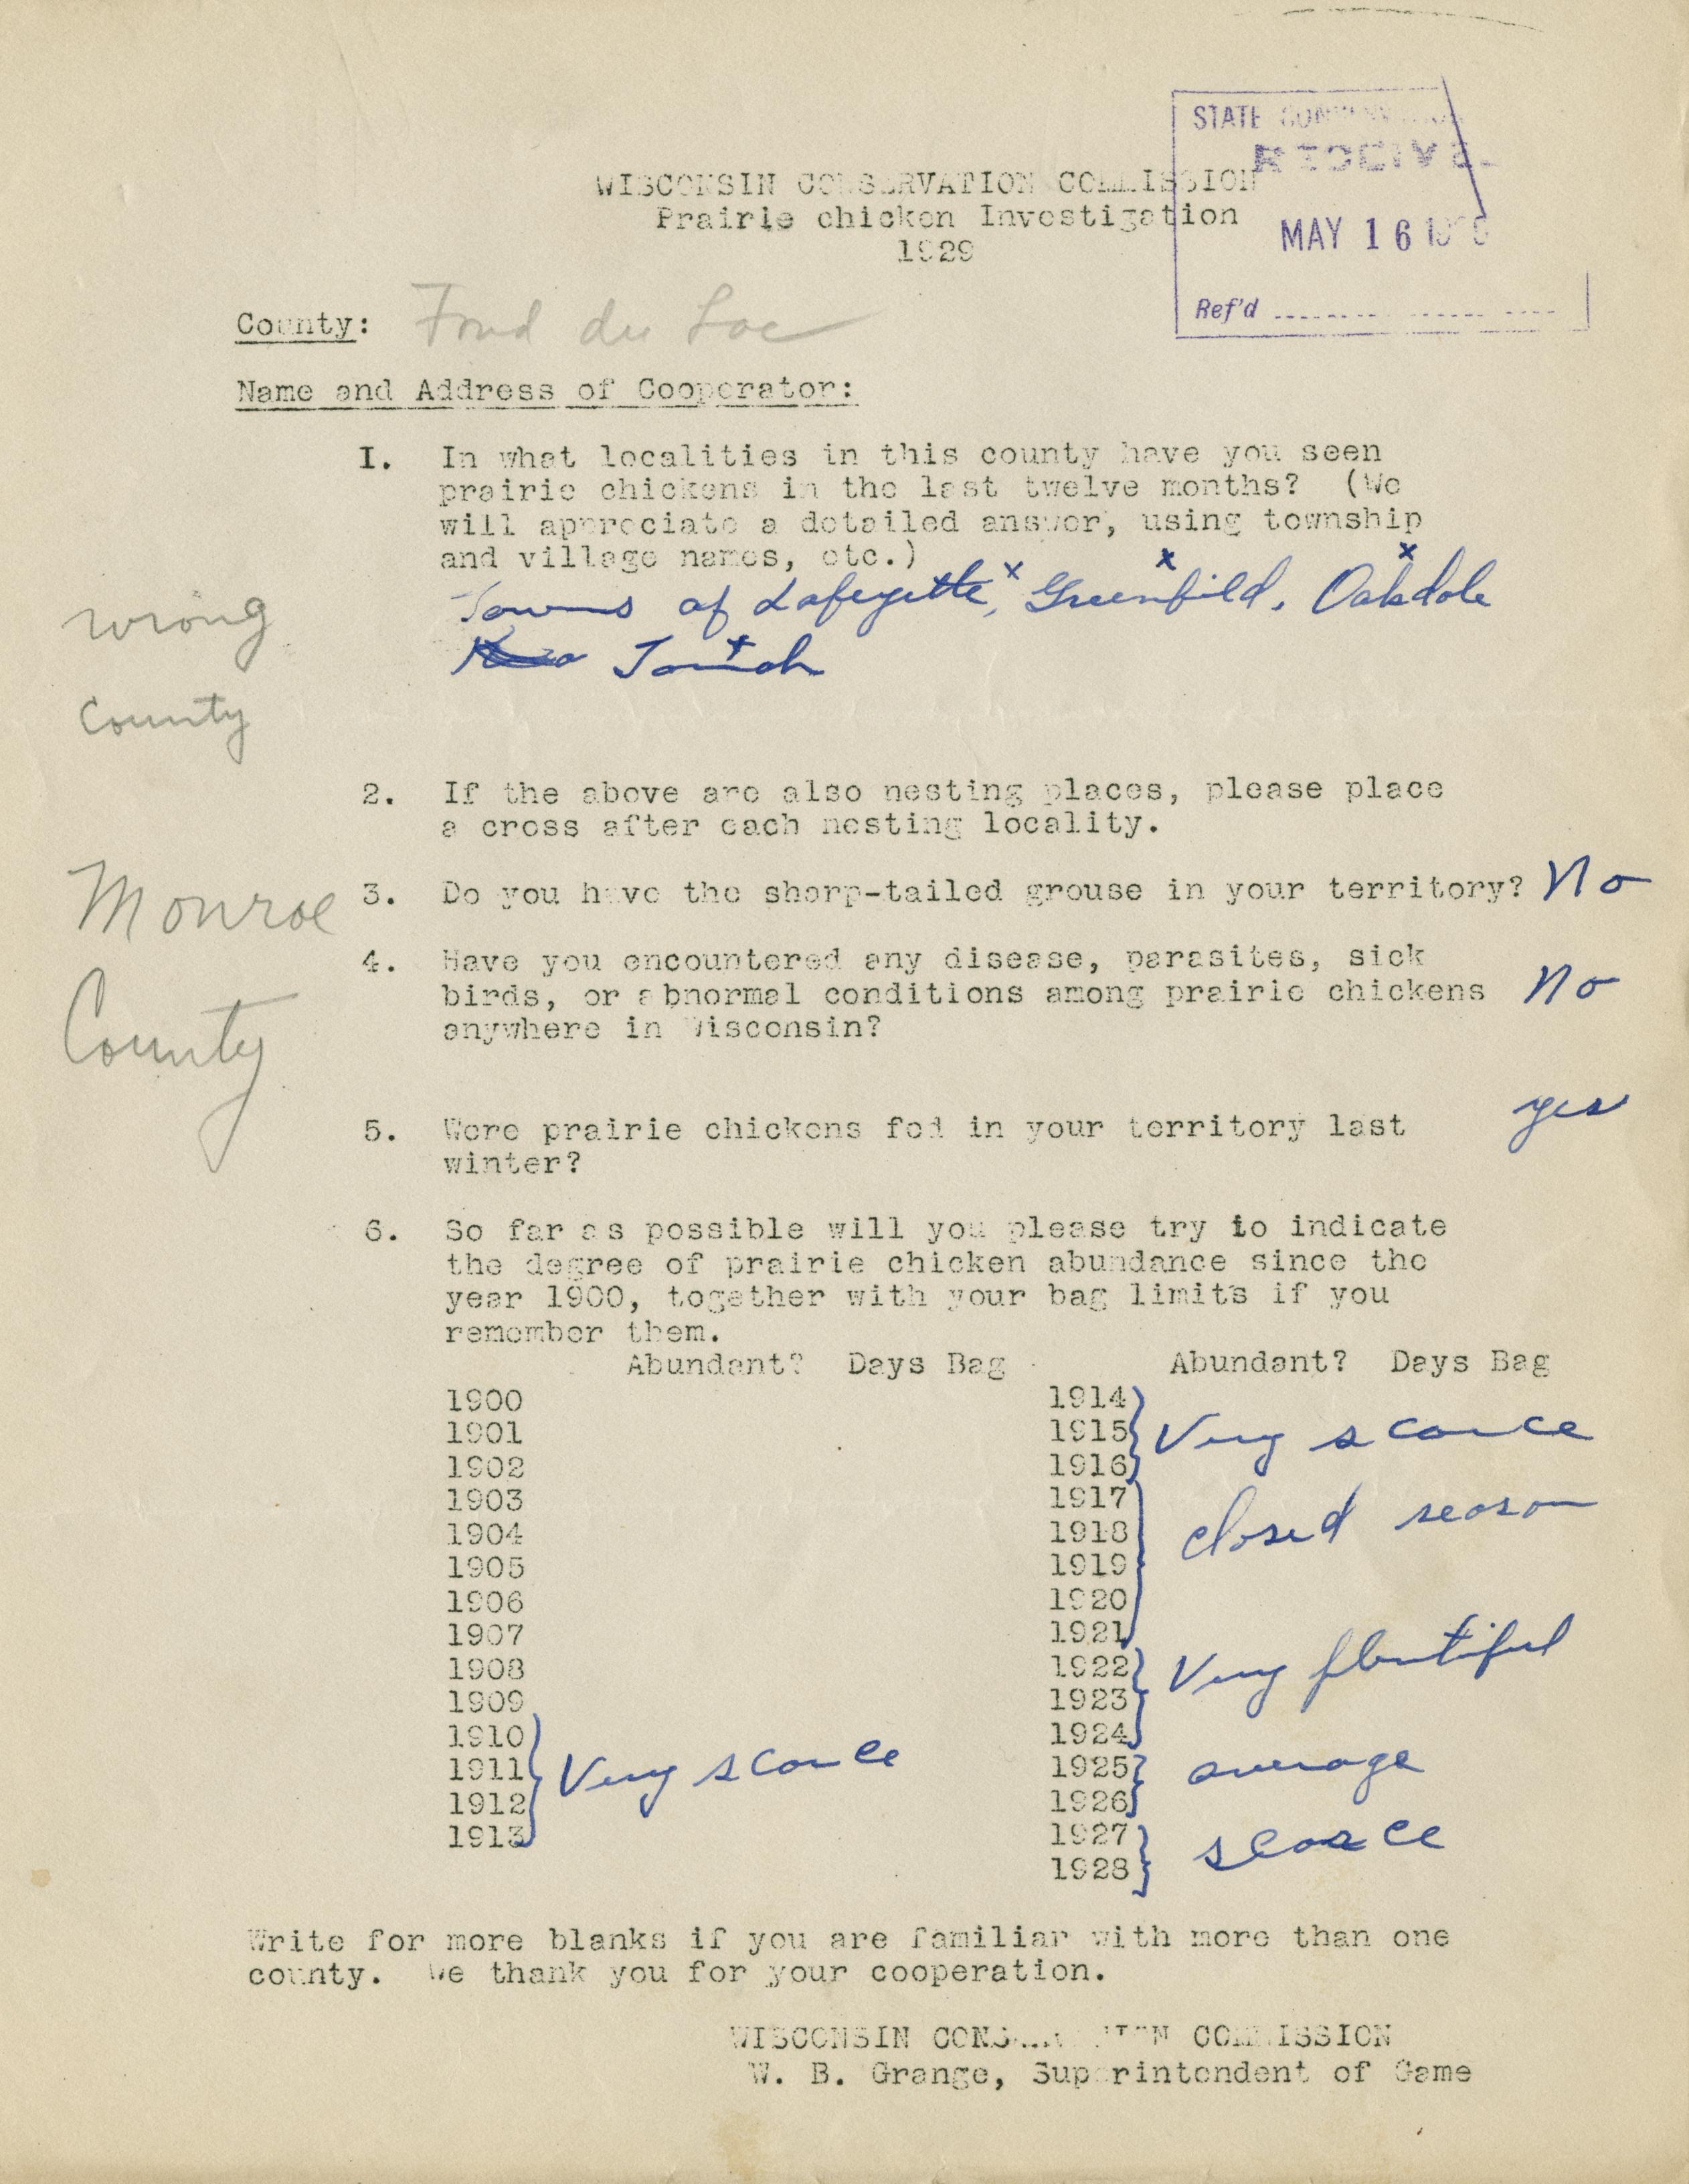 STATE
RECEIVED
WISCONSIN CONSERVATION COMMISSION
Prairie chicken Investigation
1929
MAY 16
Ref'd
County: Fond du Lac
Name and Address of Cooperator:
I. In what localities in this county have you seen
prairie chickens in the last twelve months? (We
will appreciate a detailed answer, using township
and village names, etc.)
Towns of Lafeyette x, Greenfild x, Oakdale x
Tomah x
wrong
county
2. If the above are also nesting places, please place
a cross after each nesting locality.
Monroe
County
3. Do you have the sharp-tailed grouse in your territory? No
4. Have you encountered any disease, parasites, sick
birds, or abnormal conditions among prairie chickens No
anywhere in Wisconsin?
5. Were prairie chickens fed in your territory last yes
winter?
6. So far as possible will you please try to indicate
the degree of prairie chicken abundance since the
year 1900, together with your bag limits if you
remember them.
Abundant? Days Bag Abundant? Days Bag
1900 1914
1901 1915 Very scarce
1902 1916
1903 1917
1904 1918 closed season
1905 1919
1906 1920
1907 1921
1908 1922 Very plentiful
1909 1923
1910 1924
1911 Very scarce 1925 average
1912 1926
1913 1927 scarce
1928
Write for more blanks if you are familiar with more than one
county. We thank you for your cooperation.
WISCONSIN CONSERVATION COMMISSION
W. B. Grange, Superintendent of Game